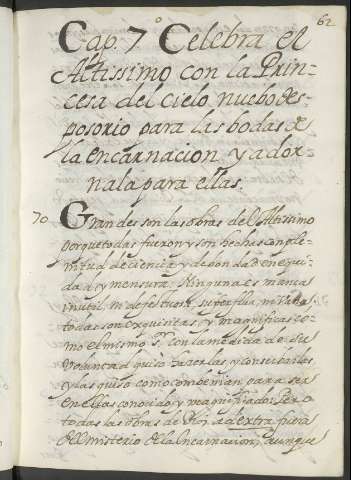 62
Cap. 7º Celebra el
Altissimo con la Prin-
cesa del cielo nuebo des-
posorio para las bodas de
la encarnacion y ador
nala para ellas.
70 Grandes son las obras del Altissimo
porque todas fueron y son hechas con ple-
nitud de ciencia y de bondad en equi-
dad y mensura. Ninguna es manca
inutil, ni defectuosa, superflua, ni vana
todas son exquisitas, y magnificas co-
mo el mismo S. con la medida de su
voluntad quiso hazerlas, y conserbarlas
y las quiso como combenian, para ser
en ellas conocido y magnificado. Pero
todas las obras de Dios ad extra, fuera
del misterio de la Encarnacion, aunque